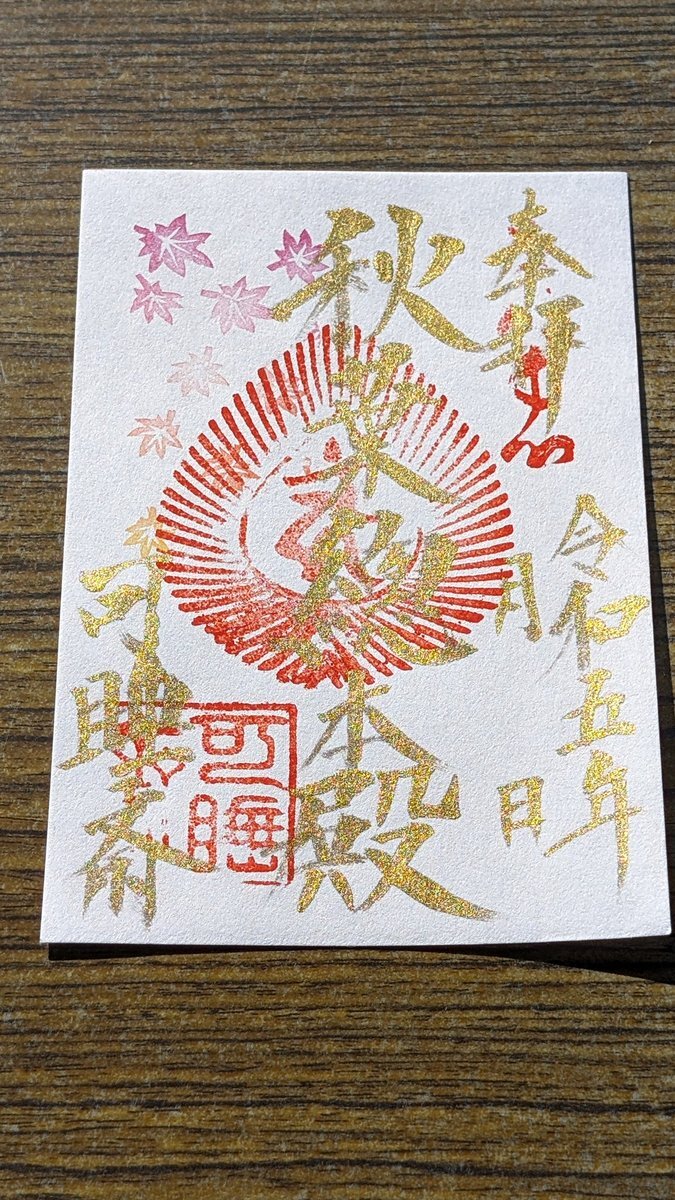 奉拝
令和五年
月 日
秋葉総本殿
可睡斎